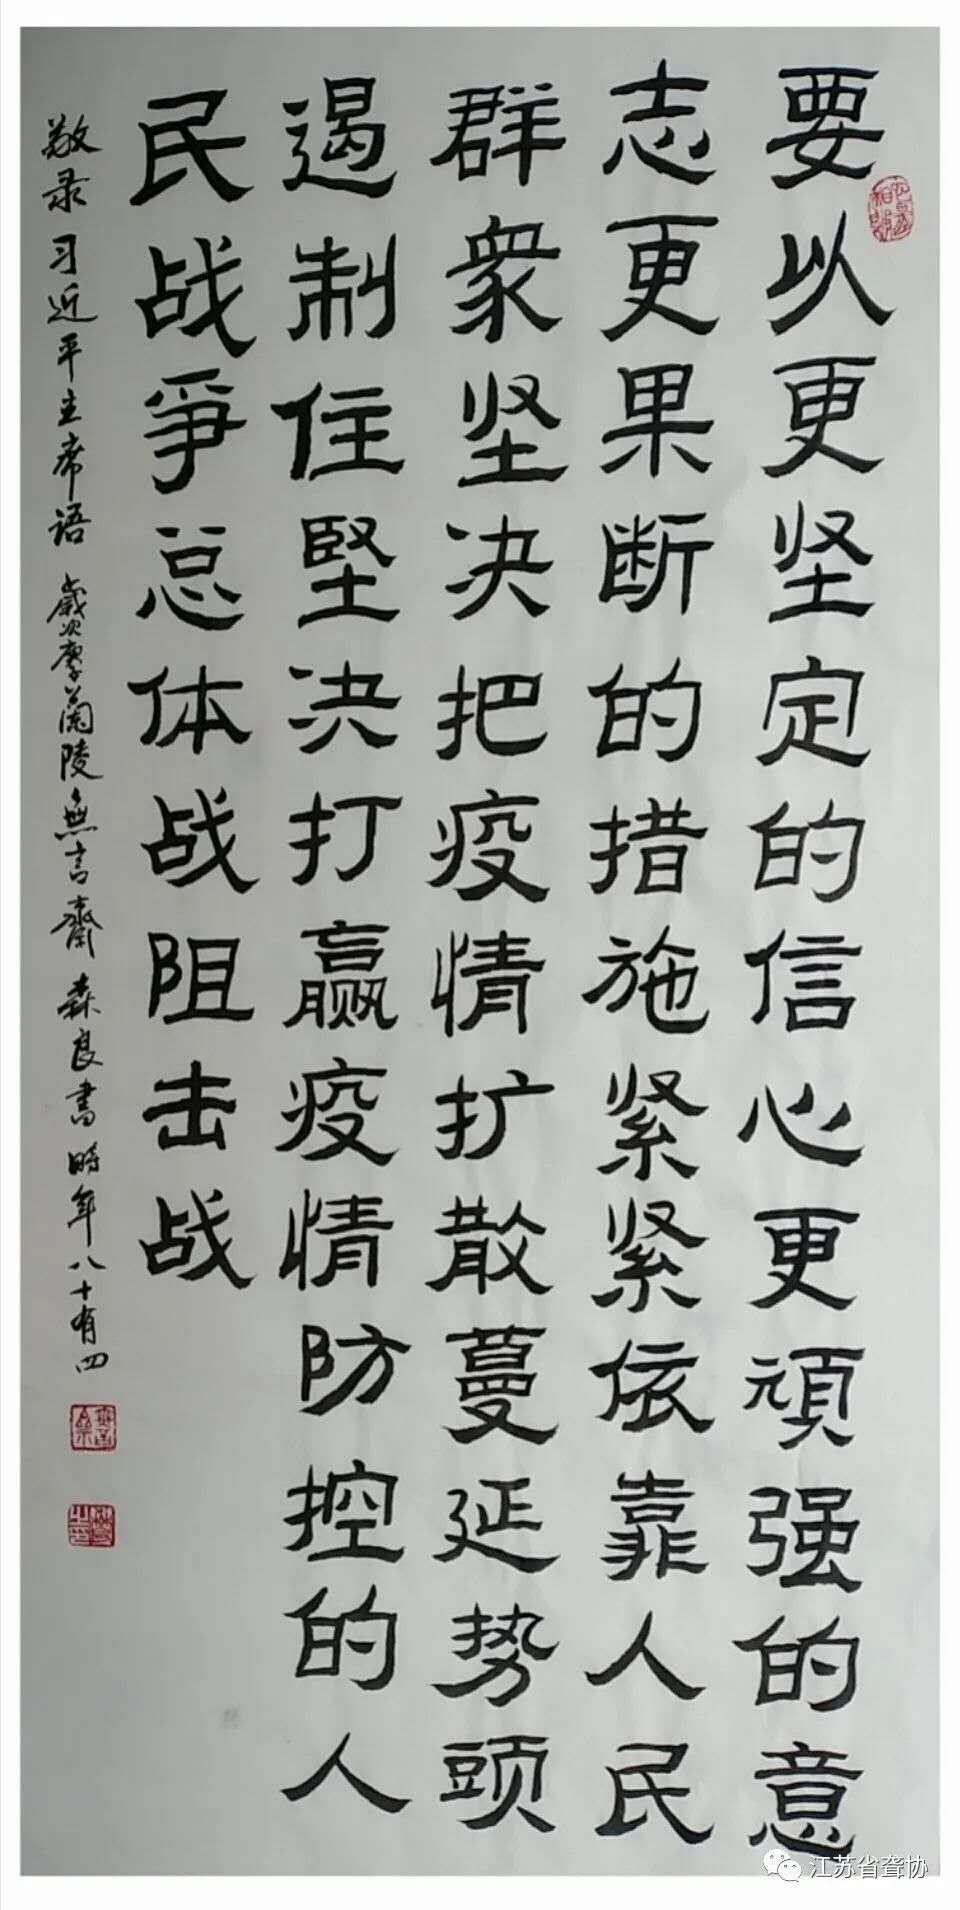 要以更坚定的信心更頑强的意
志更果断的措施紧紧依靠人民
群衆坚决把疫情扩散蔓延势头
遏制住堅决打赢疫情防控的人
民战爭总体战阻击战
敬录习近平主席语 歲次庚子蘭陵無言齋森良書時年八十有四
江苏省聋协